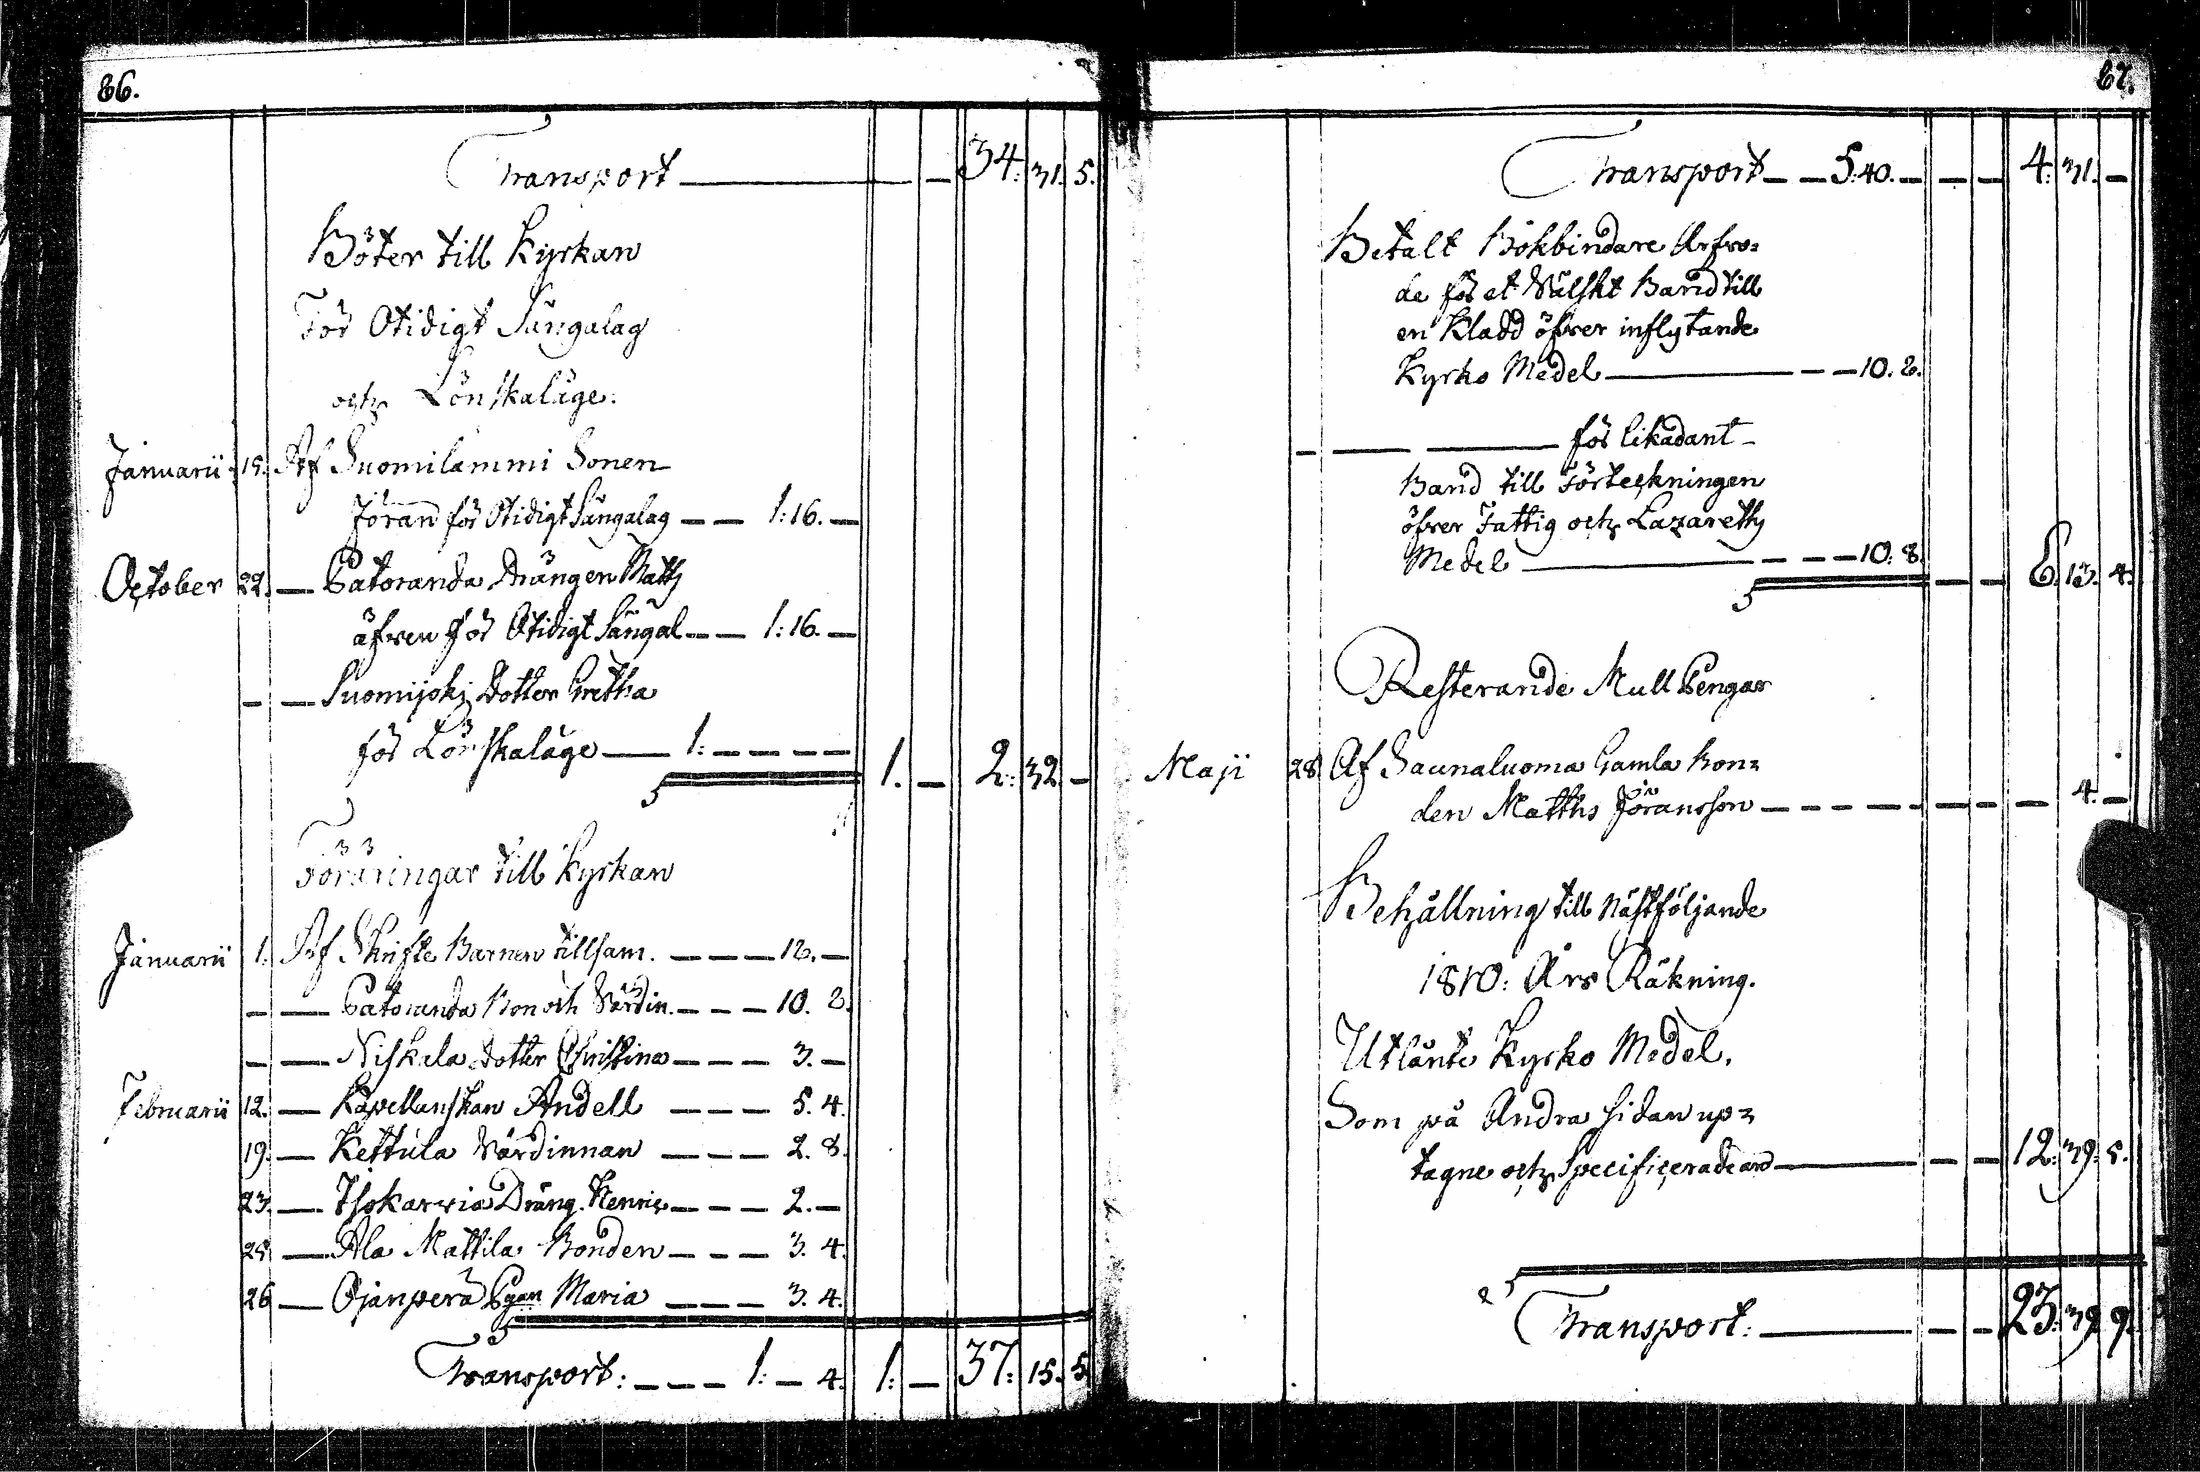 86.
Transport — 34. 31. 5.
Böter till Kyrkan
För Otidigt Sängalag
och Lönskaläge.
Januarii 15. Af Suomilammi Sonen
Jöran för Otidigt Sängalag — — 1: 16. —
October 22. — Patoranda Drängen Matts
äfven för Otidigt Sängal — — 1: 16. —
— — Suomijoki Dotter Gretha
för Lönskaläge — 1: — — — — 1. — 2: 32. —
Föräringar till Kyrkan
Januarii 1. Af Skrifte Barnen tillsam. — — — 12. —
— — Patoranda Bon och Värdin. — — — 10. 8.
— — Niskala Dotter Christina — — — 3. —
Februarii 12. — Kapellanskan Andell — — — 5. 4.
19. — Kettula Värdinnan — — — 2. 8.
23. — Isokarvia Dräng. Henric — — — 2. —
25. — Ala Mattila Bonden — — — 3. 4.
26 — Ojanperä Pgan Maria — — — 3. 4.
Transport: — — — 1: — 4. 1: — 37: 15. 5
87.
Transport — — 5: 40. — — — 4: 31. —
Betalt Bokbindare Arfvo=
de för et Välskt Band till
en Kladd öfver inflytande
Kyrko Medel — — — 10. 8.
— — — för likadant —
Band till Förteckningen
öfver Fattig och Lazaretts
Medel — — — — 10: 8. — — 6. 13. 4.
Resterande Mull Pengar
Maji 28 Af Saunaluoma Gamla Bon=
den Matths Jöransson — — — — — — — — 4. —
Behållning till Nästföljande
1810: Års Räkning.
Utlånte Kyrko Medel.
Som på Andra sidan up=
tagne och Specificerade äro — — — 12: 39. 5.
Transport: — — — 23: 39. 9.